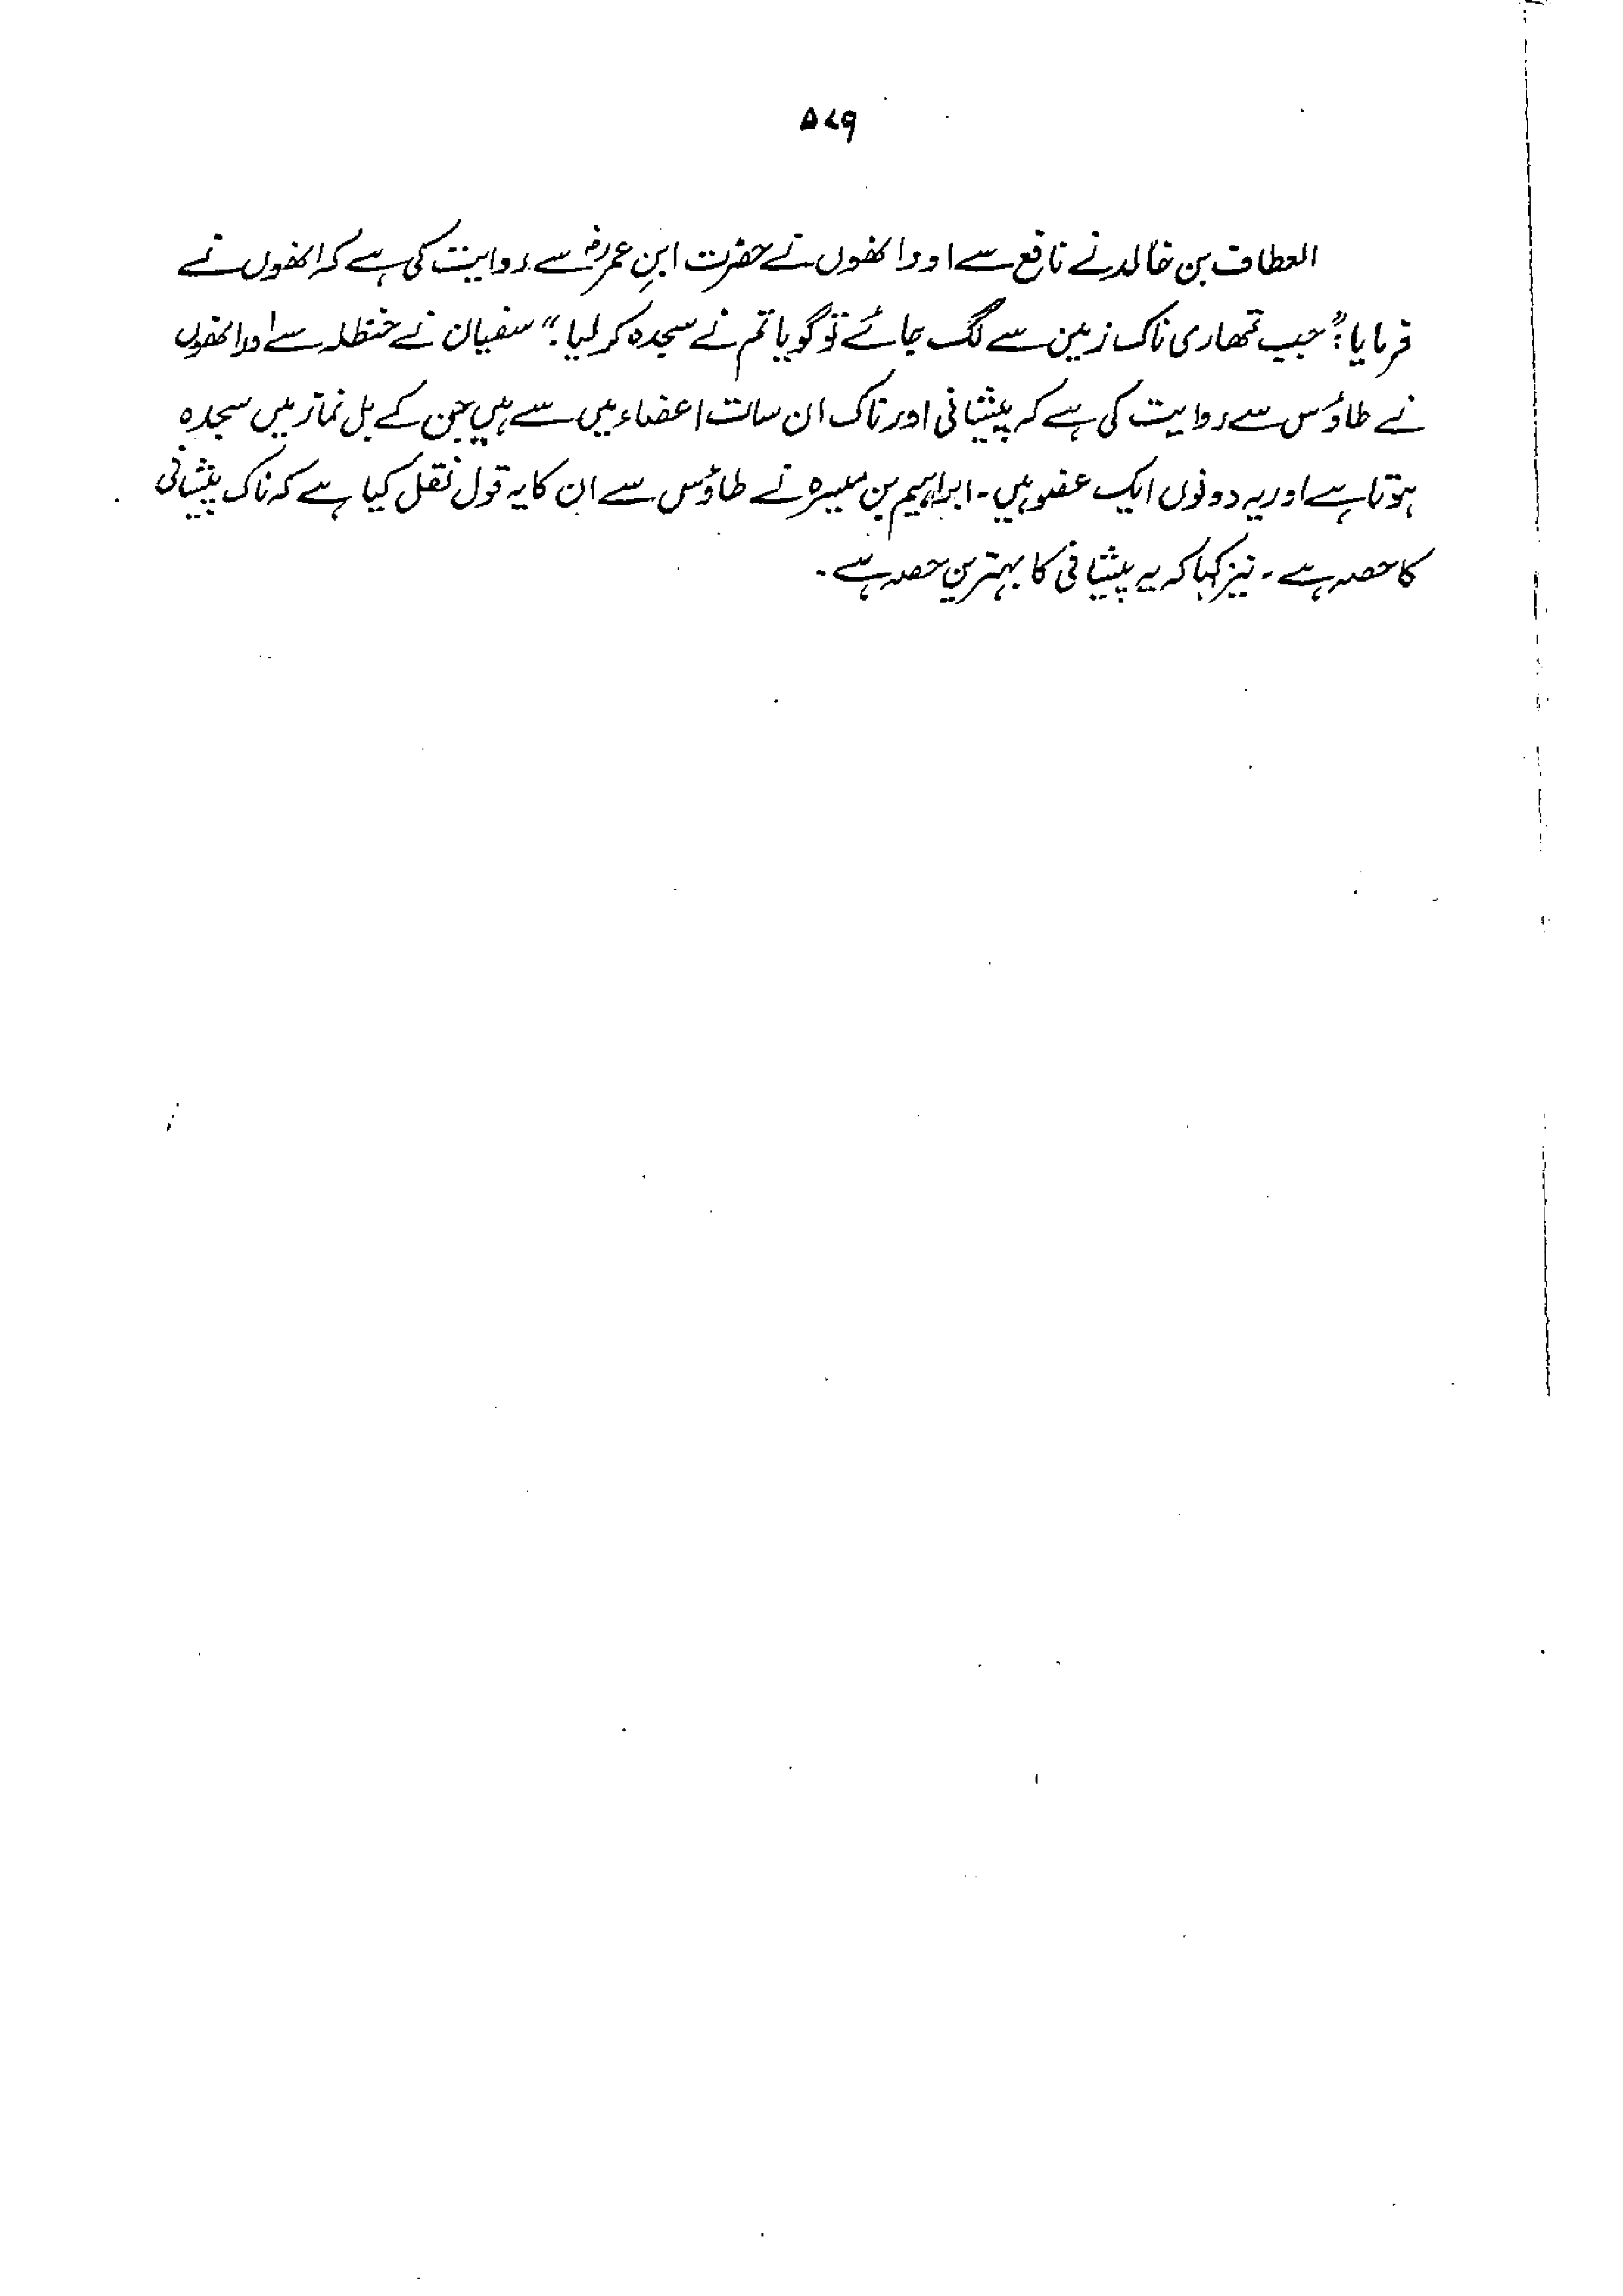 ۵۷۹
العطاف بن خالد نے نافع سے اور انھوں نے حضرت ابنِ عمرؓ سے روایت کی ہے کہ انھوں نے
فرمایا: "جب تمھاری ناک زمین سے لگ جائے تو گویا تم نے سجدہ کر لیا۔" سفیان نے حنظلہ سے اور انھوں
نے طاؤس سے روایت کی ہے کہ پیشانی اور ناک ان سات اعضاء میں سے ہیں جن کے بل نماز میں سجدہ
ہوتا ہے اور یہ دونوں ایک عضو ہیں۔ ابراہیم بن میسرہ نے طاؤس سے ان کا یہ قول نقل کیا ہے کہ ناک پیشانی
کا حصہ ہے۔ نیز کہا کہ یہ پیشانی کا بہترین حصہ ہے۔